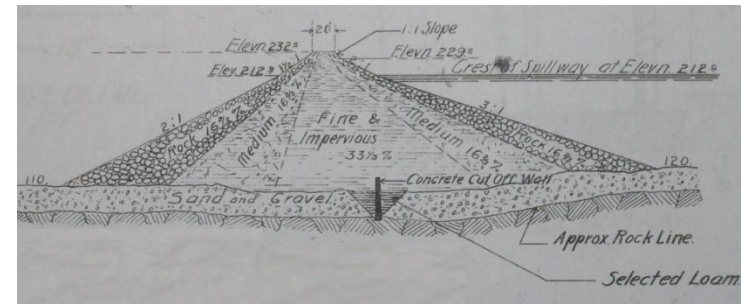 20'
1:1 Slope
Elevn. 232±
Elevn. 229±
Elev. 212±
Crest of Spillway at Elevn. 212±
2:1
3:1
Rock 16⅔ %
Medium 16⅔ %
Fine &
Impervious
33⅓ %
Medium 16⅔ %
Rock 16⅔ %
110
120
Concrete Cut Off Wall
Sand and Gravel
Approx. Rock Line.
Selected Loam